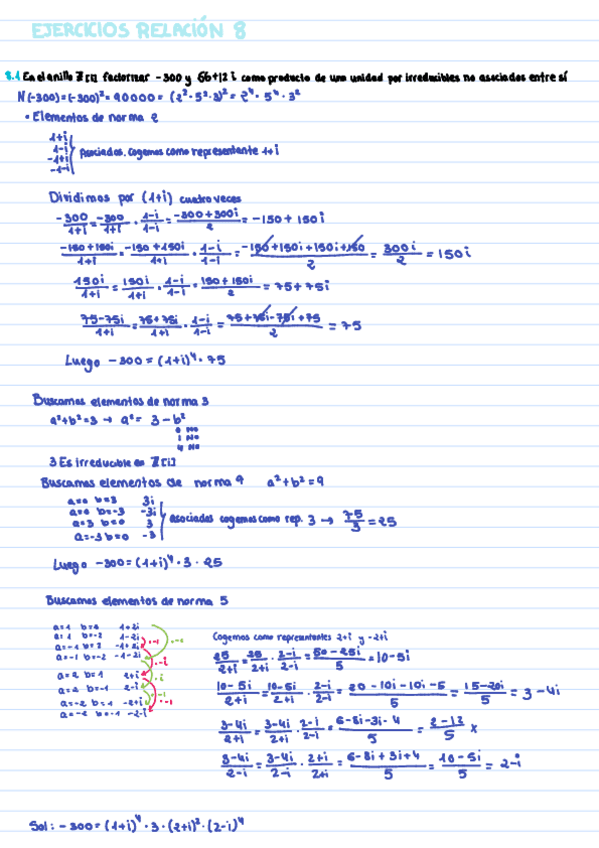 EJERCICIOS RELACIÓN 8
8.1 En el anillo Z[i] factorizar -300 y 66+12i como producto de una unidad por irreducibles no asociados entre sí
N(-300) = (-300)² = 90000 = (2²·5²·3)² = 2⁴·5⁴·3²
• Elementos de norma 2
1+i
1-i
-1+i
-1-i
Asociados. Cogemos como representante 1+i
Dividimos por (1+i) cuatro veces
-300/1+i = -300/1+i · 1-i/1-i = -300+300i/2 = -150+150i
-150+150i/1+i = -150+150i/1+i · 1-i/1-i = -150+150i+150i+150/2 = 300i/2 = 150i
150i/1+i = 150i/1+i · 1-i/1-i = 150+150i/2 = 75+75i
75-75i/1+i = 75+75i/1+i · 1-i/1-i = 75+75i-75i+75/2 = 75
Luego -300 = (1+i)⁴·75
Buscamos elementos de norma 3
a²+b²=3 → a² = 3-b²
0 No
1 No
4 No
3 Es irreducible en Z[i]
Buscamos elementos de norma 9 a²+b²=9
a=0 b=3 3i
a=0 b=-3 -3i
a=3 b=0 3
a=-3 b=0 -3
Asociados cogemos como rep. 3 → 75/3 = 25
Luego -300 = (1+i)⁴·3·25
Buscamos elementos de norma 5
a=1 b=2 1+2i
a=1 b=-2 1-2i
a=-1 b=2 -1+2i
a=-1 b=-2 -1-2i
a=2 b=1 2+i
a=2 b=-1 2-i
a=-2 b=1 -2+i
a=-2 b=-1 -2-i
·-1
·-1
·-i
·-i
·-1
·-1
Cogemos como representantes 2+i y -2+i
25/2+i = 25/2+i · 2-i/2-i = 50-25i/5 = 10-5i
10-5i/2+i = 10-5i/2+i · 2-i/2-i = 20-10i-10i-5/5 = 15-20i/5 = 3-4i
3-4i/2+i = 3-4i/2+i · 2-i/2-i = 6-8i-3i-4/5 = 2-12/5 x
3-4i/2-i = 3-4i/2-i · 2+i/2+i = 6-8i+3i+4/5 = 10-5i/5 = 2-i
Sol: -300 = (1+i)⁴·3·(2+i)²·(2-i)⁴